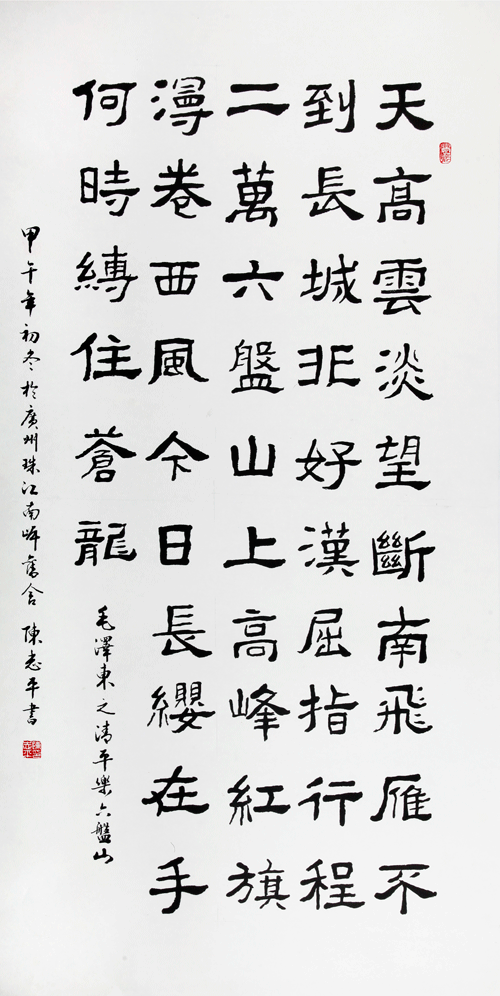 天高雲淡望斷南飛雁不
到長城非好漢屈指行程
二萬六盤山上高峰紅旗
漫卷西風今日長纓在手
何時縛住蒼龍
毛澤東之清平樂六盤山
甲午年初冬於廣州珠江南岸舊舍 陳志平書